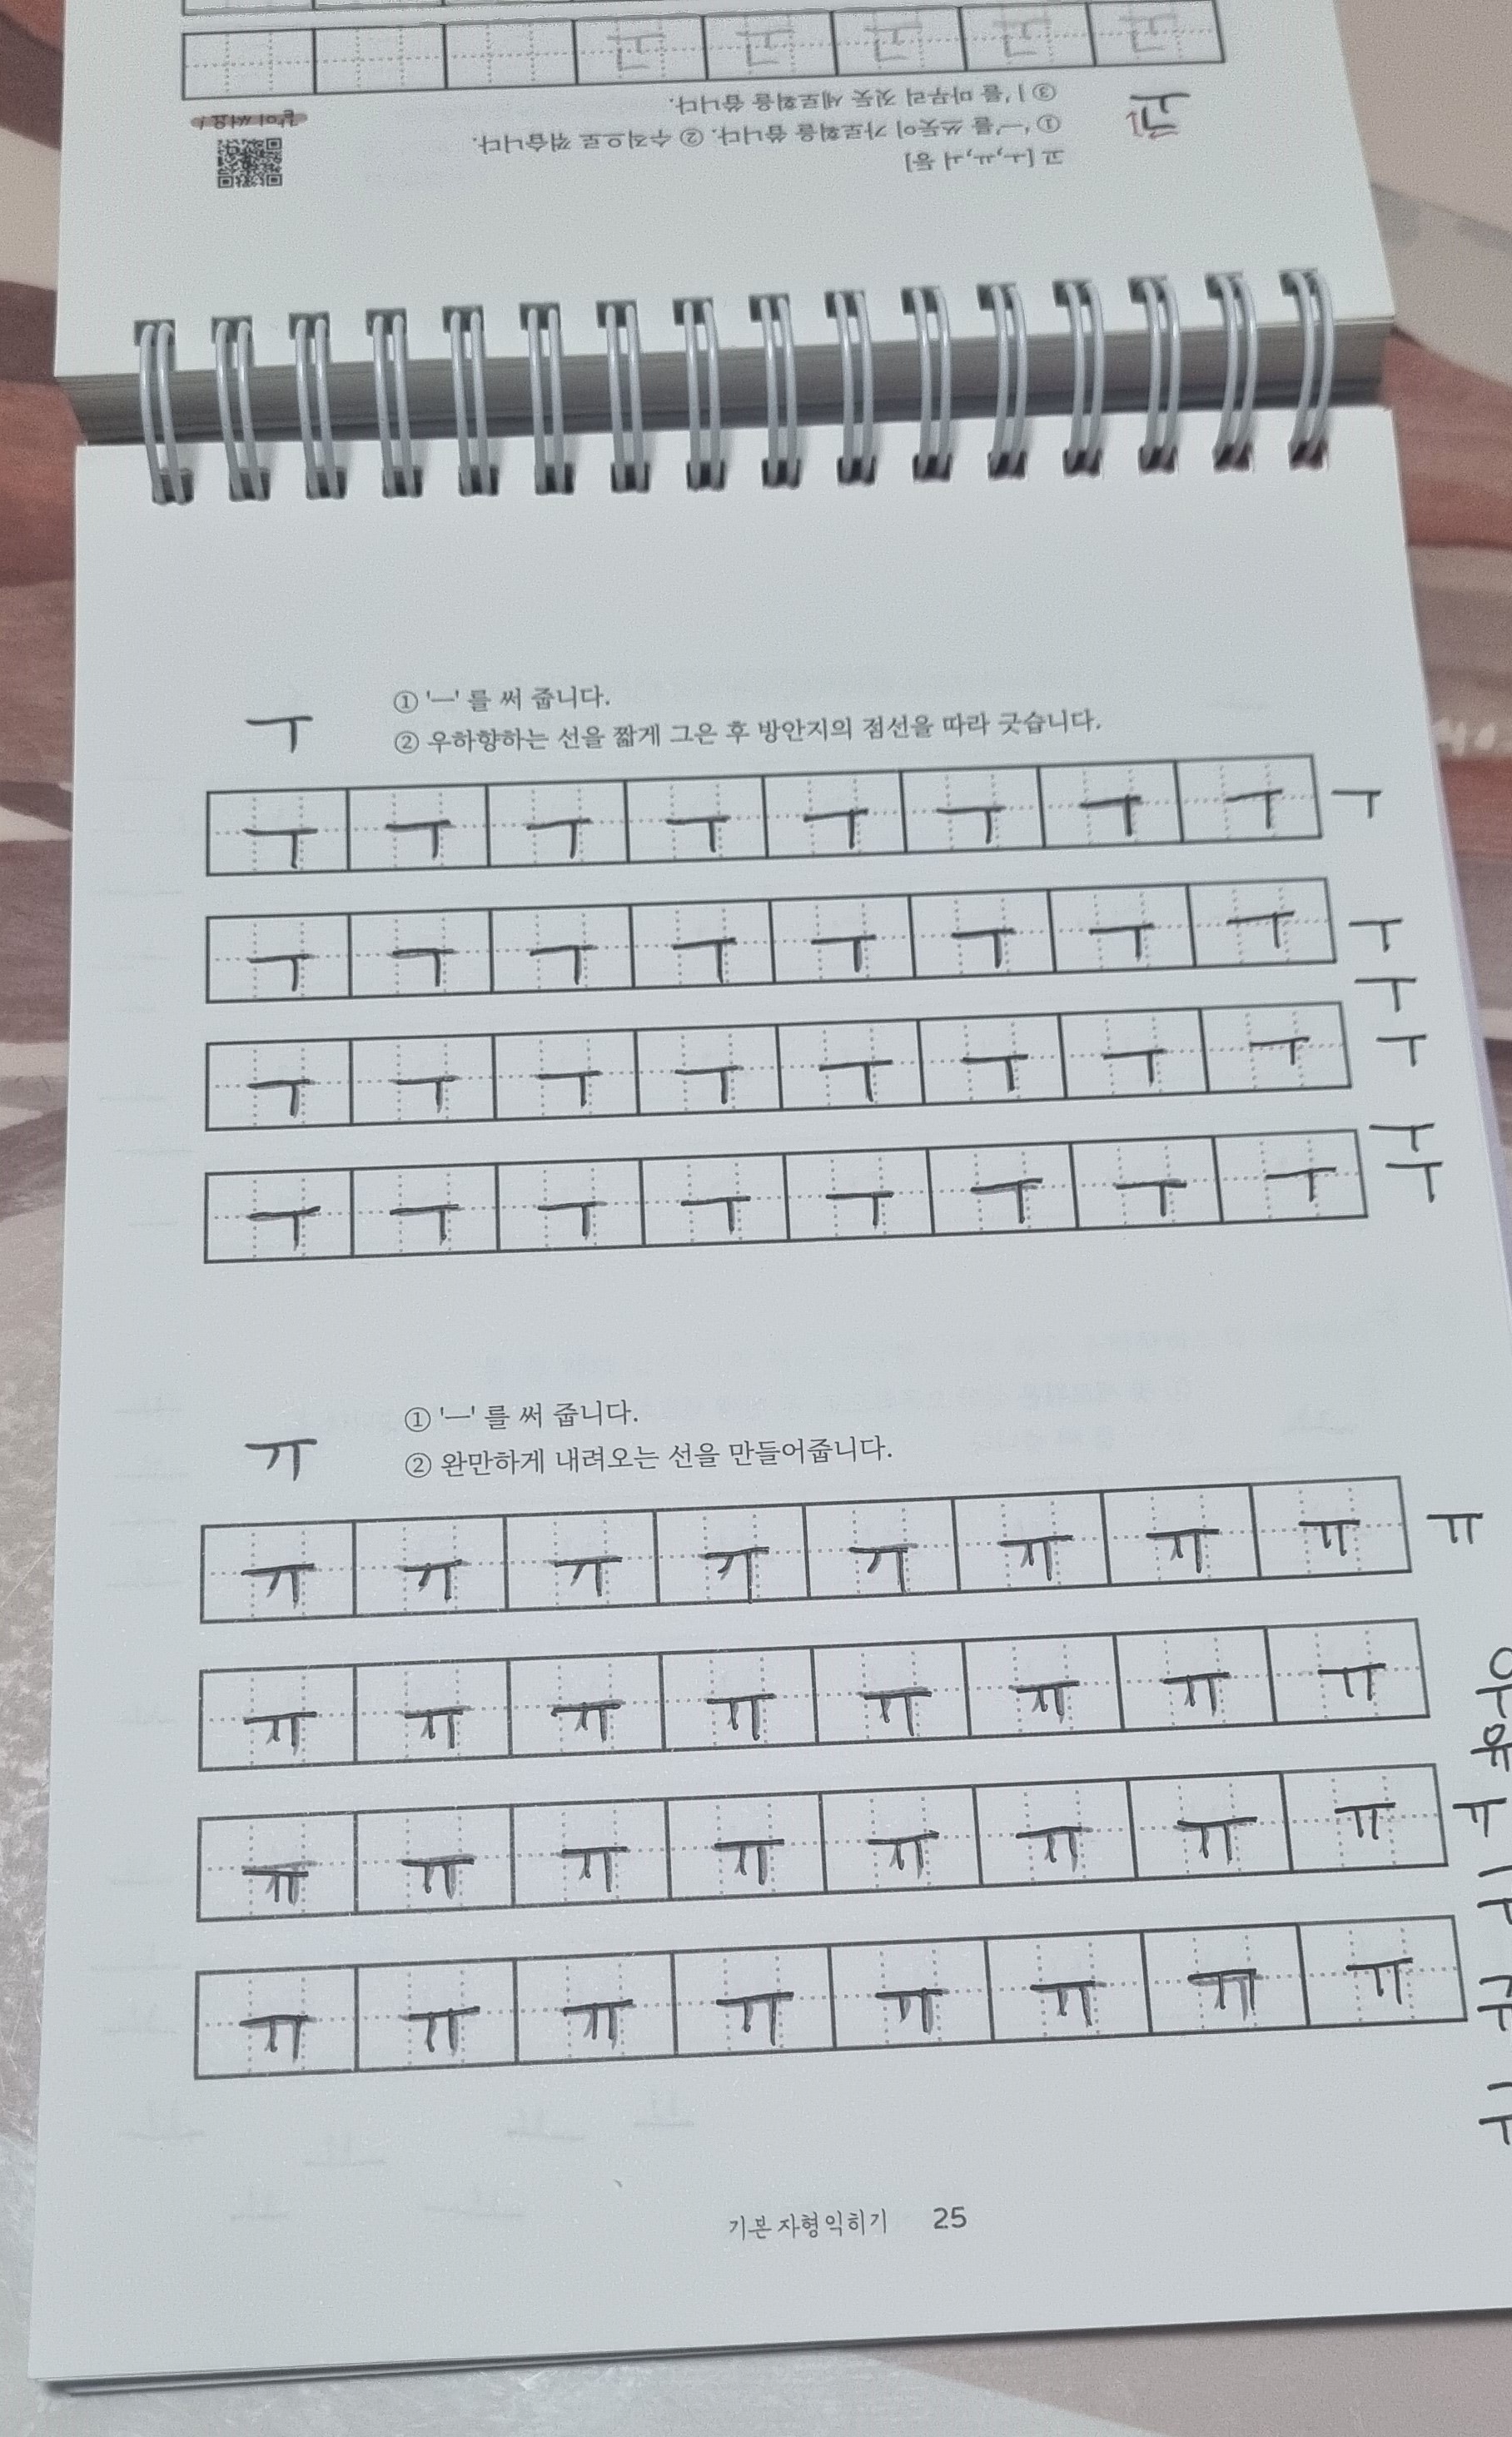 고 [ㅗ,ㅛ,ㅚ 등]
① 'ㅡ'를 쓰듯이 가로획을 씁니다. ② 수직으로 꺾습니다.
③ 'ㅣ'를 마무리 짓듯 세로획을 씁니다.
같이 써요!
ㅜ
① 'ㅡ' 를 써 줍니다.
② 우하향하는 선을 짧게 그은 후 방안지의 점선을 따라 긋습니다.
ㅜ ㅜ ㅜ ㅜ ㅜ ㅜ ㅜ ㅜ ㅜ
ㅜ ㅜ ㅜ ㅜ ㅜ ㅜ ㅜ ㅜ ㅜ
ㅜ
ㅜ ㅜ ㅜ ㅜ ㅜ ㅜ ㅜ ㅜ ㅜ
ㅜ
ㅜ ㅜ ㅜ ㅜ ㅜ ㅜ ㅜ ㅜ ㅜ
ㅠ
① 'ㅡ' 를 써 줍니다.
② 완만하게 내려오는 선을 만들어줍니다.
ㅠ ㅠ ㅠ ㅠ ㅠ ㅠ ㅠ ㅠ ㅠ
ㅠ ㅠ ㅠ ㅠ ㅠ ㅠ ㅠ ㅠ 우
유
ㅠ ㅠ ㅠ ㅠ ㅠ ㅠ ㅠ ㅠ ㅠ
ㅠ ㅠ ㅠ ㅠ ㅠ ㅠ ㅠ ㅠ
기본 자형 익히기 25